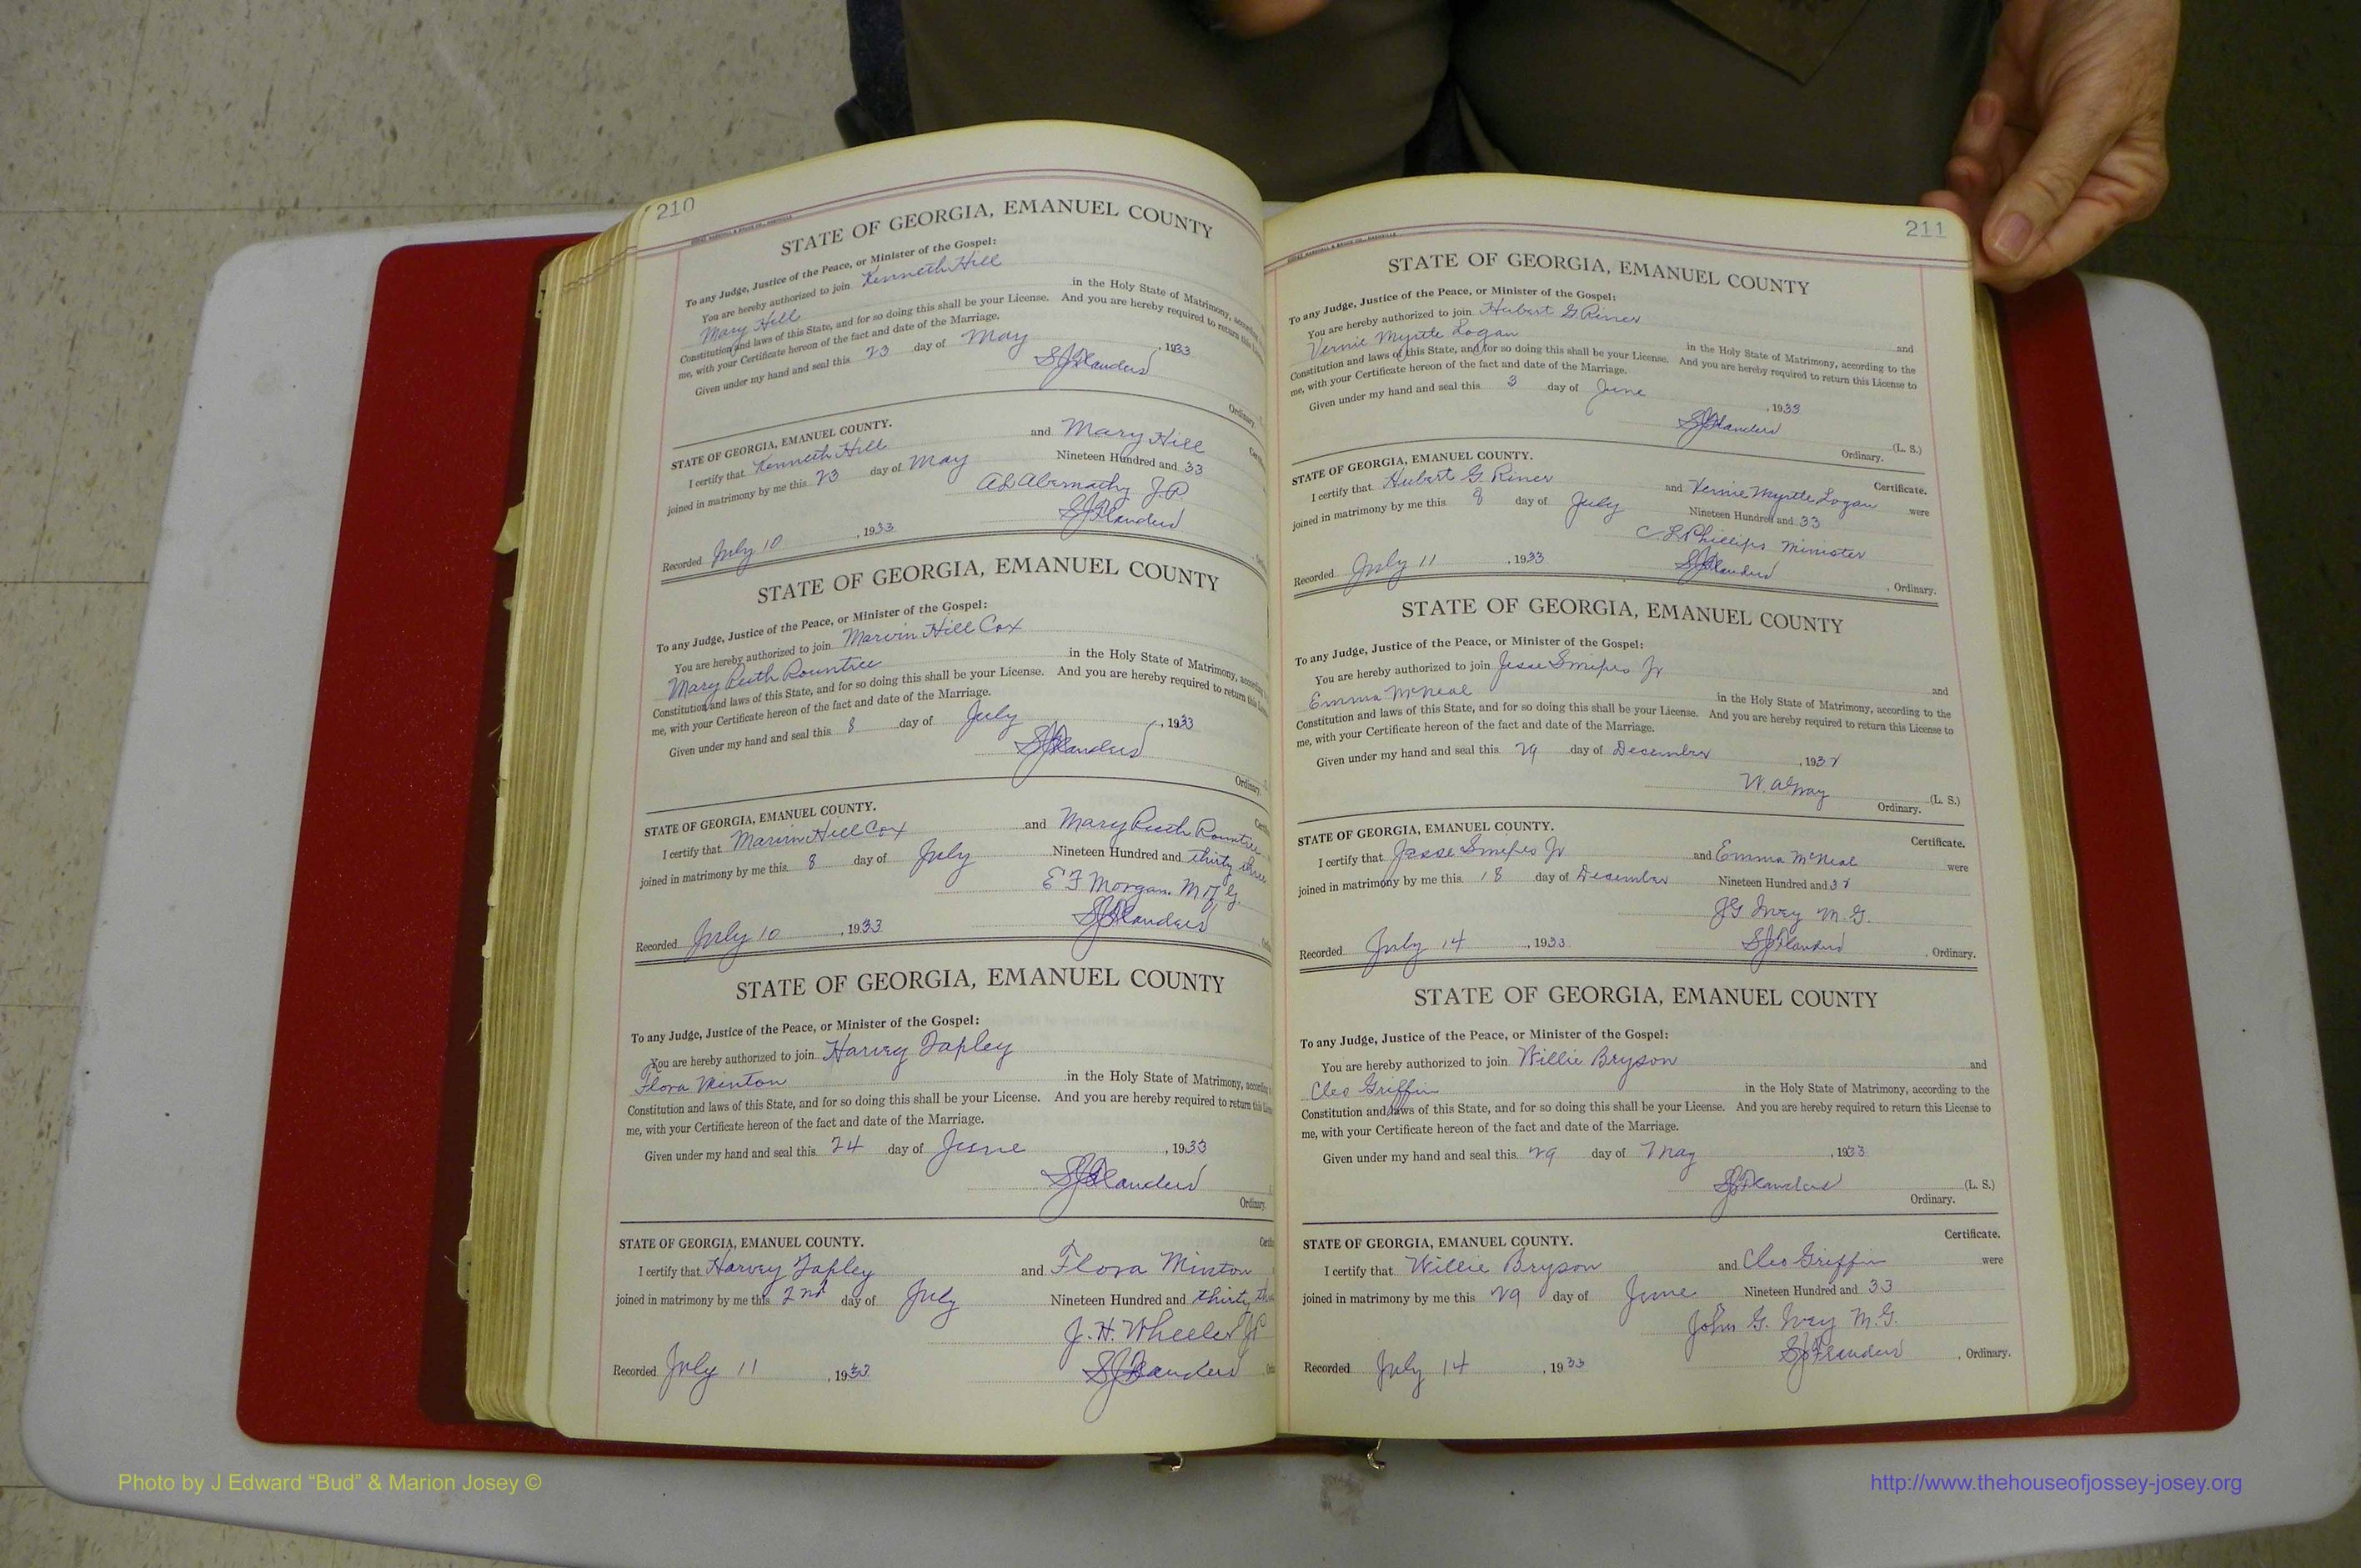 210
STATE OF GEORGIA, EMANUEL COUNTY
To any Judge, Justice of the Peace, or Minister of the Gospel:
You are hereby authorized to join Kenneth Hill
Mary Hill in the Holy State of Matrimony,
Constitution and laws of this State, and for so doing this shall be your License. And you are hereby required to return this
me, with your Certificate hereon of the fact and date of the Marriage.
Given under my hand and seal this 23 day of May, 1933
S J Flanders
Ordinary.
STATE OF GEORGIA, EMANUEL COUNTY.
I certify that Kenneth Hill and Mary Hill
joined in matrimony by me this 23 day of May Nineteen Hundred and 33
A L Abernathy J.P.
S J Flanders
Recorded July 10, 1933
STATE OF GEORGIA, EMANUEL COUNTY
To any Judge, Justice of the Peace, or Minister of the Gospel:
You are hereby authorized to join Marvin Hill Cox
Mary Ruth Rountree in the Holy State of Matrimony,
Constitution and laws of this State, and for so doing this shall be your License. And you are hereby required to return this
me, with your Certificate hereon of the fact and date of the Marriage.
Given under my hand and seal this 8 day of July, 1933
S J Flanders
Ordinary.
STATE OF GEORGIA, EMANUEL COUNTY.
I certify that Marvin Hill Cox and Mary Ruth Rountree
joined in matrimony by me this 8 day of July Nineteen Hundred and thirty three
E F Morgan. M of G.
S J Flanders
Recorded July 10, 1933
STATE OF GEORGIA, EMANUEL COUNTY
To any Judge, Justice of the Peace, or Minister of the Gospel:
You are hereby authorized to join Harvey Tapley
Flora Minton in the Holy State of Matrimony,
Constitution and laws of this State, and for so doing this shall be your License. And you are hereby required to return this
me, with your Certificate hereon of the fact and date of the Marriage.
Given under my hand and seal this 24 day of June, 1933
S J Flanders
Ordinary.
STATE OF GEORGIA, EMANUEL COUNTY.
I certify that Harvey Tapley and Flora Minton
joined in matrimony by me this 2nd day of July Nineteen Hundred and thirty
J. H. Wheeler JP
S J Flanders
Recorded July 11, 1933
211
STATE OF GEORGIA, EMANUEL COUNTY
To any Judge, Justice of the Peace, or Minister of the Gospel:
You are hereby authorized to join Hubert G Riner and
Vernie Myrtle Logan in the Holy State of Matrimony, according to the
Constitution and laws of this State, and for so doing this shall be your License. And you are hereby required to return this License to
me, with your Certificate hereon of the fact and date of the Marriage.
Given under my hand and seal this 3 day of June, 1933
S J Flanders (L. S.)
Ordinary.
STATE OF GEORGIA, EMANUEL COUNTY. Certificate.
I certify that Hubert G Riner and Vernie Myrtle Logan were
joined in matrimony by me this 8 day of July Nineteen Hundred and 33
C. L Phillips Minister
S J Flanders
Recorded July 11, 1933, Ordinary.
STATE OF GEORGIA, EMANUEL COUNTY
To any Judge, Justice of the Peace, or Minister of the Gospel:
You are hereby authorized to join Jesse Smipes Jr and
Emma McNeal in the Holy State of Matrimony, according to the
Constitution and laws of this State, and for so doing this shall be your License. And you are hereby required to return this License to
me, with your Certificate hereon of the fact and date of the Marriage.
Given under my hand and seal this 29 day of December, 1932
(L. S.)
Ordinary.
STATE OF GEORGIA, EMANUEL COUNTY. Certificate.
I certify that Jesse Smipes Jr and Emma McNeal were
joined in matrimony by me this 18 day of December Nineteen Hundred and 32
J G Ivey M. G.
S J Flanders
Recorded July 14, 1933, Ordinary.
STATE OF GEORGIA, EMANUEL COUNTY
To any Judge, Justice of the Peace, or Minister of the Gospel:
You are hereby authorized to join Willie Bryson and
Cleo Griffin in the Holy State of Matrimony, according to the
Constitution and laws of this State, and for so doing this shall be your License. And you are hereby required to return this License to
me, with your Certificate hereon of the fact and date of the Marriage.
Given under my hand and seal this 29 day of May, 1933
S J Flanders (L. S.)
Ordinary.
STATE OF GEORGIA, EMANUEL COUNTY. Certificate.
I certify that Willie Bryson and Cleo Griffin were
joined in matrimony by me this 29 day of June Nineteen Hundred and 33
John G. Ivey M. G.
S J Flanders
Recorded July 14, 1933, Ordinary.
Photo by J Edward “Bud” & Marion Josey ©
http://www.thehouseofjossey-josey.org